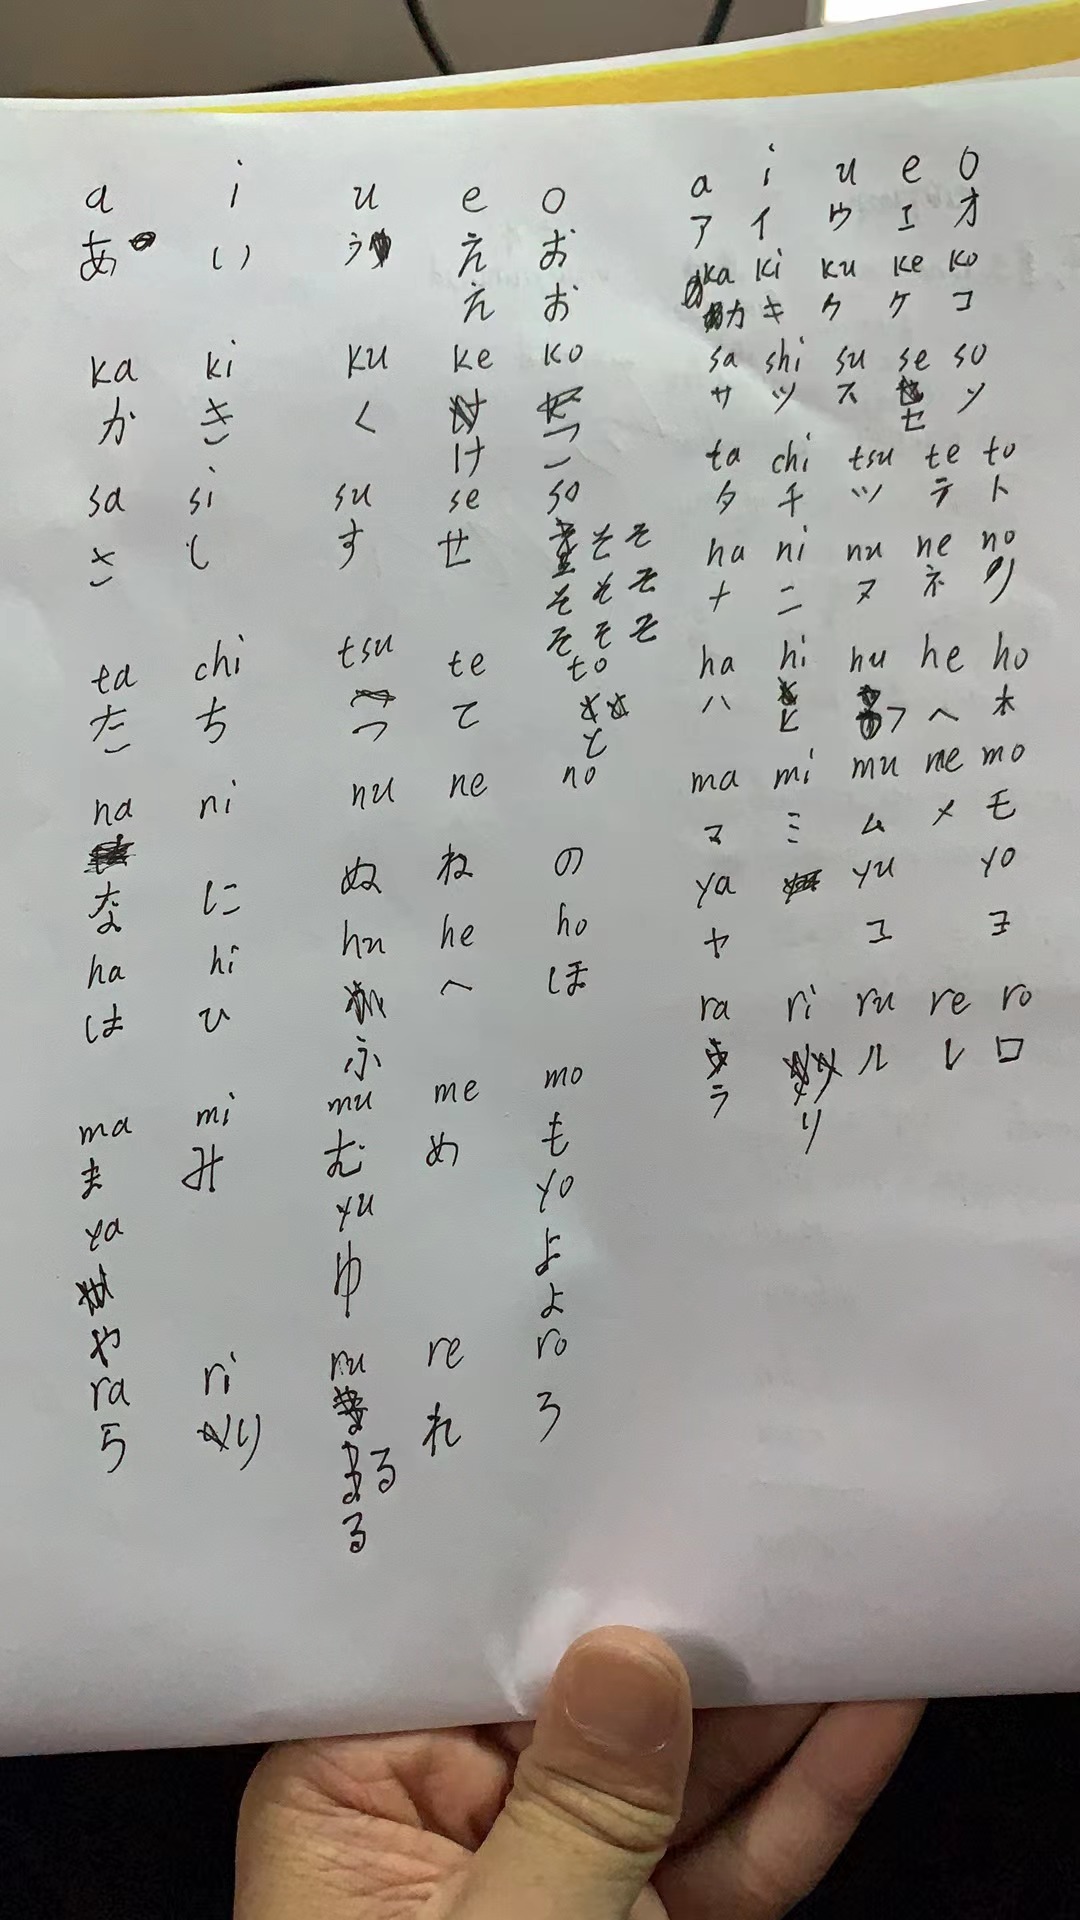 a i u e o
あ い う え お
え お
ka ki ku ke ko
か き く け こ
sa si su se so
さ し す せ そ そ
そ そ そ
そ そ そ
ta chi tsu te to
た ち つ て と
na ni nu ne no
な に ぬ ね の
ha hi hu he ho
は ひ ふ へ ほ
ma mi mu me mo
ま み む め も
ya yu yo
や ゆ よ
よ
ra ri ru re ro
ら り る れ ろ
る
a i u e o
ア イ ウ エ オ
ka ki ku ke ko
カ キ ク ケ コ
sa shi su se so
サ ツ ス セ ソ
ta chi tsu te to
タ チ ツ テ ト
na ni nu ne no
ナ ニ ヌ ネ ノ
ha hi hu he ho
ハ ヒ フ ヘ ホ
ma mi mu me mo
マ ミ ム メ モ
ya yu yo
ヤ ユ ヨ
ra ri ru re ro
ラ リ ル レ ロ